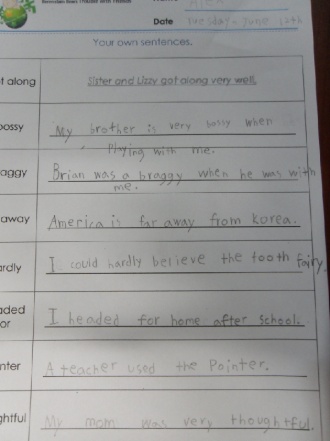 Date Tuesday - June 12th
Your own sentences.
t along Sister and Lizzy got along very well.
bossy My brother is very bossy when
playing with me.
aggy Brian was a braggy when he was with
me.
away America is far away from Korea.
ardly I could hardly believe the tooth fairy
aded I headed for home after school.
or
nter A teacher used the Pointer.
ghtful My mom was very thoughtful.